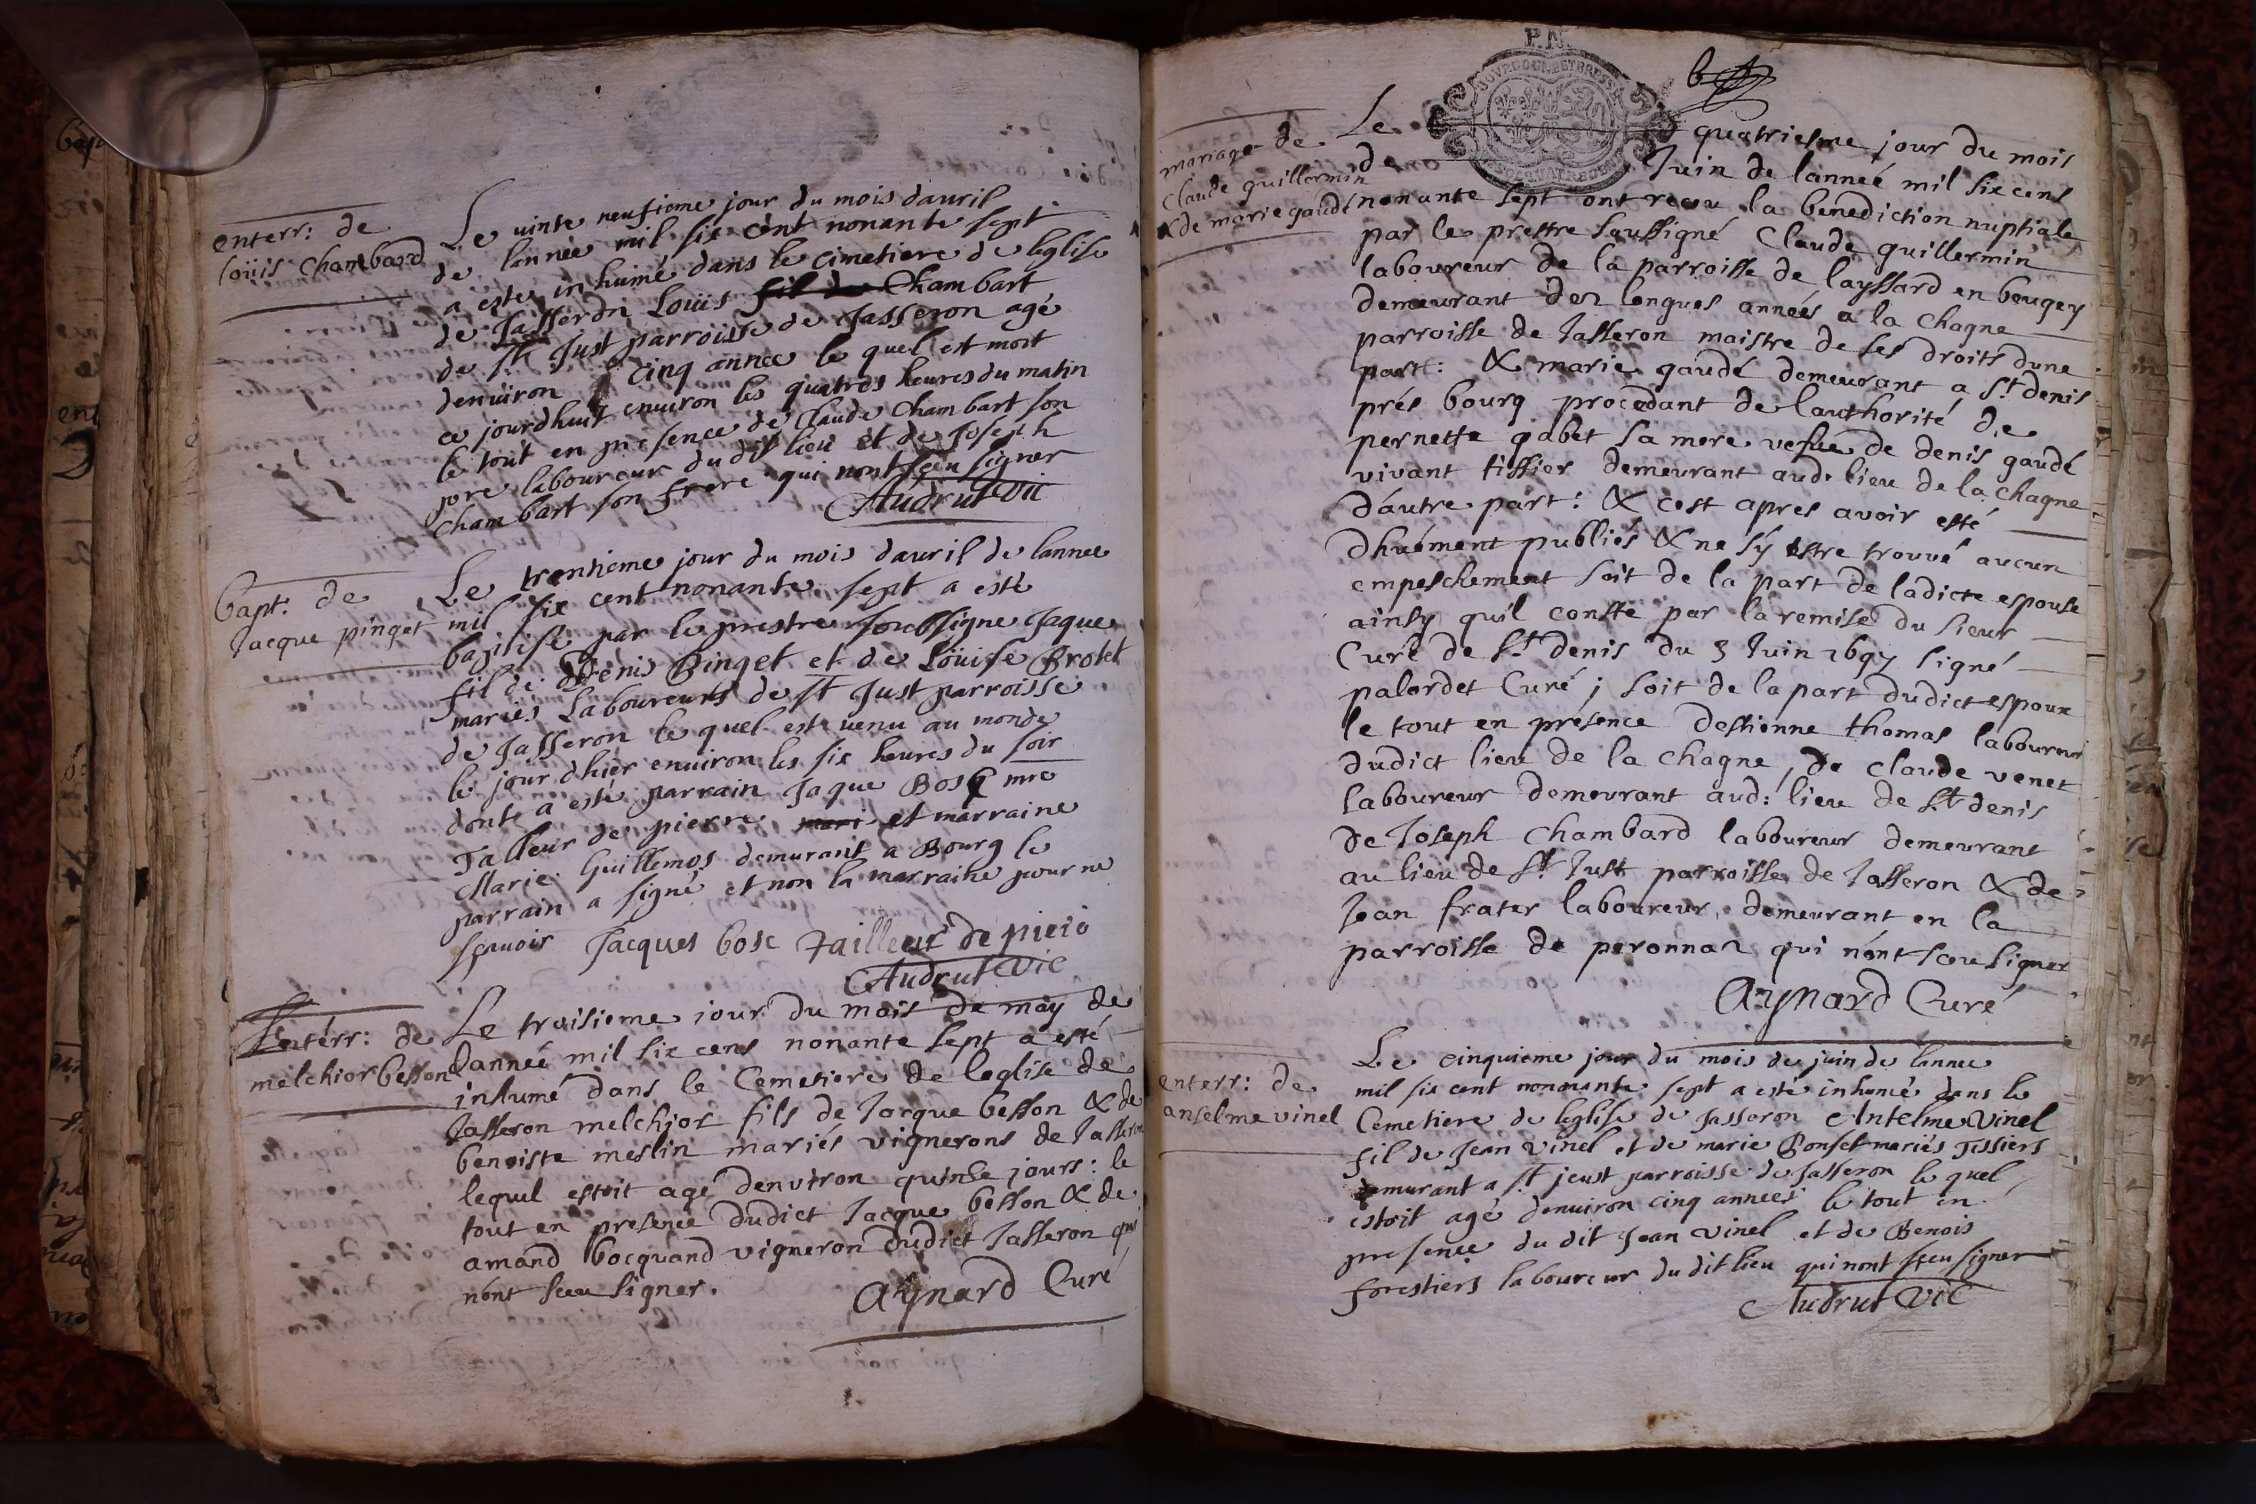 enterr: de
loüis Chambard
Le vinte neufieme jour du mois dauril
de lannee mil six cent nonante sept
a esté inhumé dans le cimetiere de leglise
de Jasseron Louïs fil de Chambart
de st Just parroisse de Jasseron agé
denuiron cinq annee le quel est mort
ce jourdhuit enuiron les quatres heures du matin
le tout en presence de Claude Chambart son
pere laboureur du dit lieu et de Joseph
Chambart son frere qui nont sceu signer
Audrut Vic
bapt: de
Jacque pinget
Le trentieme jour du mois dauril de lannee
mil six cent nonante sept a esté
baptisé par le prestre soubsigne Jaque
fil de Denis Pinget et de Loüise Brotet
mariés Laboureurs de st Just parroisse
de Jasseron le quel est venu au monde
le jour dhier enuiron les six heures du soir
dont a esté parrain Jaque Bosc mre
Talleur de pierre et marraine
Marie Guillemos demurant a Bourg le
parrain a signé et non la marraine pour ne
sçauoir Jacques bosc tailleur de piere
Audrut Vic
Enterr: de
melchior besson
Le troisieme iour du mois de may de
lannée mil six cens nonante sept a esté
inhumé dans le Cemetiere de leglise de
Jasseron melchior fils de Jacque besson & de
benoiste meslin mariés vignerons de Jasseron
lequel estoit agé denviron quinse jours: le
tout en presence dudict Jacque besson & de
amand bocquand vigneron dudict Jasseron qui
nont sceu signer.
Aynard Curé
P.N.
mariage de
Claude guillermin
& de marie gaudé
Le quatriesme jour du mois
de Juin de lanneé mil six cens
nonante sept ont receu la benediction nuptiale
par le prestre soussigné Claude guillermin
laboureur de la parroisse de layssard en beugey
demeurant dez longues années a la Chagne
parroisse de Jasseron maistre de ses droits dune
part: & marie gaudé demeurant a st denis
prés bourg procedant de lauthorité de
pernette gabet sa mere vefue de denis gaudé
vivant tissier demeurant aud. lieu de la Chagne
dáutre part: & cest apres avoir esté
dhuément publiés & ne sÿ estre trouvé aucun
empeschement soit de la part de ladicte espouse
ainsy qu'il conste par la remise du sieur
Curé de st denis du 3 Juin 1697 signé
palordet Curé; soit de la part dudict espoux
le tout en présence destienne thomas laboureur
dudict lieu de la Chagne, de claude venet
laboureur demeurant aud: lieu de st denis
de Joseph Chambard laboureur demeurant
au lieu de st Just parroisse de Jasseron & de
Jean frater laboureur, demeurant en la
parroisse de peronnaz qui nónt sceu signer
Aynard Curé
enterr: de
anselme vinel
Le cinquieme jour du mois de juin de lannee
mil six cent nonnante sept a esté inhumé dens le
Cemetiere de leglise de Jasseron Antelme Vinel
fil de Jean Vinel et de marie Ponset mariés Tissiers
demurant a st jeust parroisse de Jasseron le quel
estoit agé denuiron cinq années le tout en
presence du dit Jean vinel et de Benois
forestiers laboureur du dit lieu qui nont sceu signer
Audrut Vic